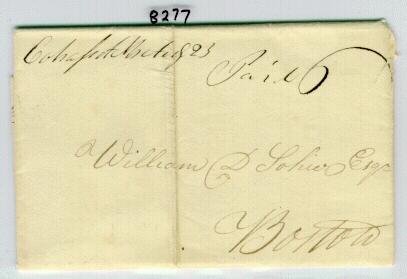 8277
Cohasset 23
Paid 6
William D Sohier Esqr
Boston